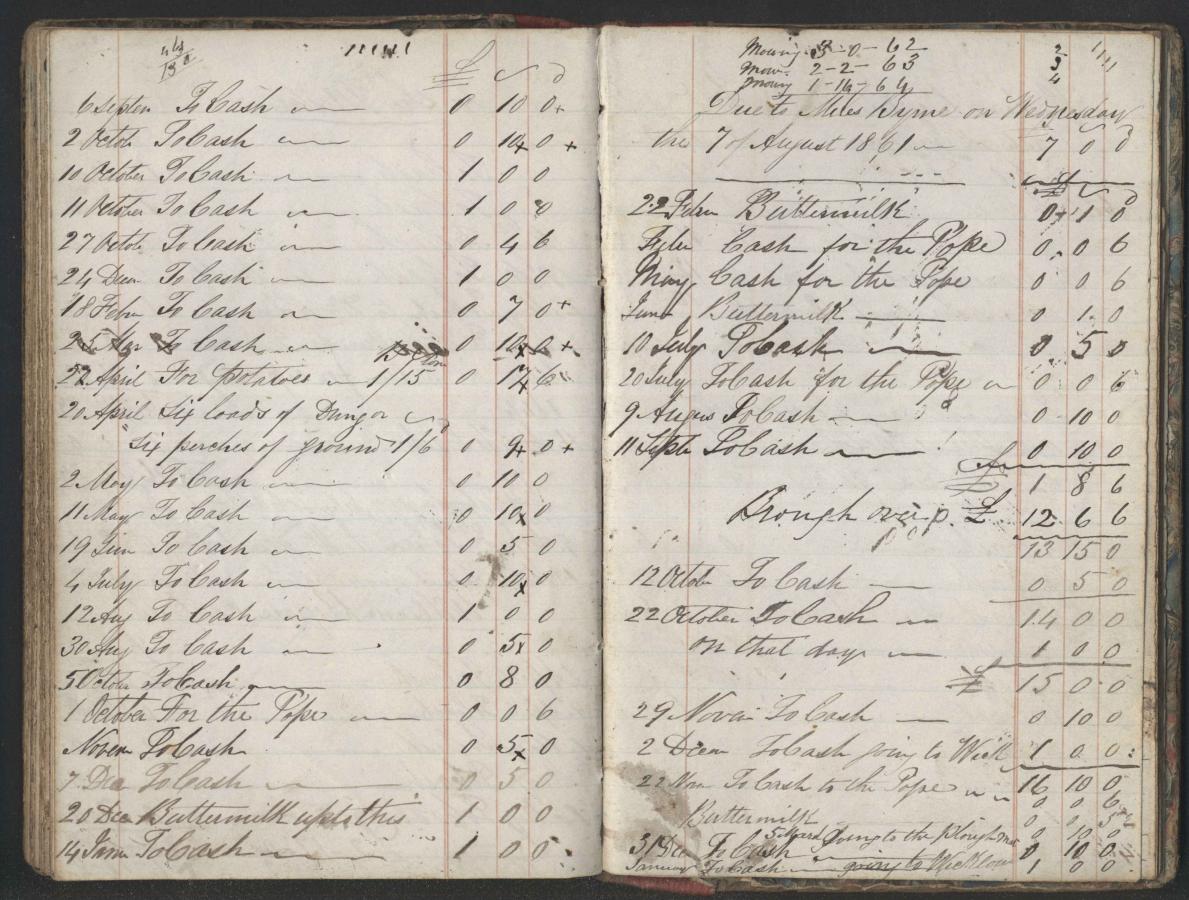 £ s d
6 Septem To Cash 0 10 0+
2 Octobr To Cash 0 10 0 +
10 October To Cash 1 0 0
11 October To Cash 1 0 0
27 Octobr To Cash 0 4 6
24 Decm To Cash 1 0 0
18 Febru To Cash 0 7 0+
25 To Cash 0 10 0 +
22 April For potatoes 1/15 0 17 6
20 April Six loads of Dung or
Six perches of ground 1/6 0 9 0 +
2 May To Cash 0 10 0
11 May To Cash 0 10 0
19 Jun To Cash 0 5 0
4 July To Cash 0 10 0
12 Aug To Cash 1 0 0
30 Aug To Cash 0 5 0
5 October To Cash 0 8 0
1 October For the Pope 0 0 6
Novem To Cash 0 5 0
7 Dec To Cash 0 5 0
20 Dec Buttermilk up to this 1 0 0
14 To Cash 1 0 0
Mowing 3-0-62 2
Mow 2-2-63 3
Mowing 1-16-64 4
Due to Miles Byrne on Wednesday
the 7 of August 1861 7 0 0
£ s d
22 Febru Buttermilk 0 1 0
Febu Cash for the Pope 0 0 6
May Cash for the Pope 0 0 6
June Buttermilk 0 1 0
10 July To Cash 0 5 0
20 July To Cash for the Pope 0 0 6
9 Augus To Cash 0 10 0
11 Septe To Cash 0 10 0
£ 1 8 6
Brough over p. £ 12 6 6
13 15 0
12 Octobr To Cash 0 5 0
22 October To Cash 14 0 0
on that day 1 0 0
£ 15 0 0
29 Novem To Cash 0 10 0
2 Decem To Cash going to Wick 1 0 0
16 10 0
22 Nov To Cash to the Pope 0 0 6
Buttermilk 0 0 5
going to the Plough
31 Dec To Cash 0 10 0
January To Cash going to Wicklow 1 0 0